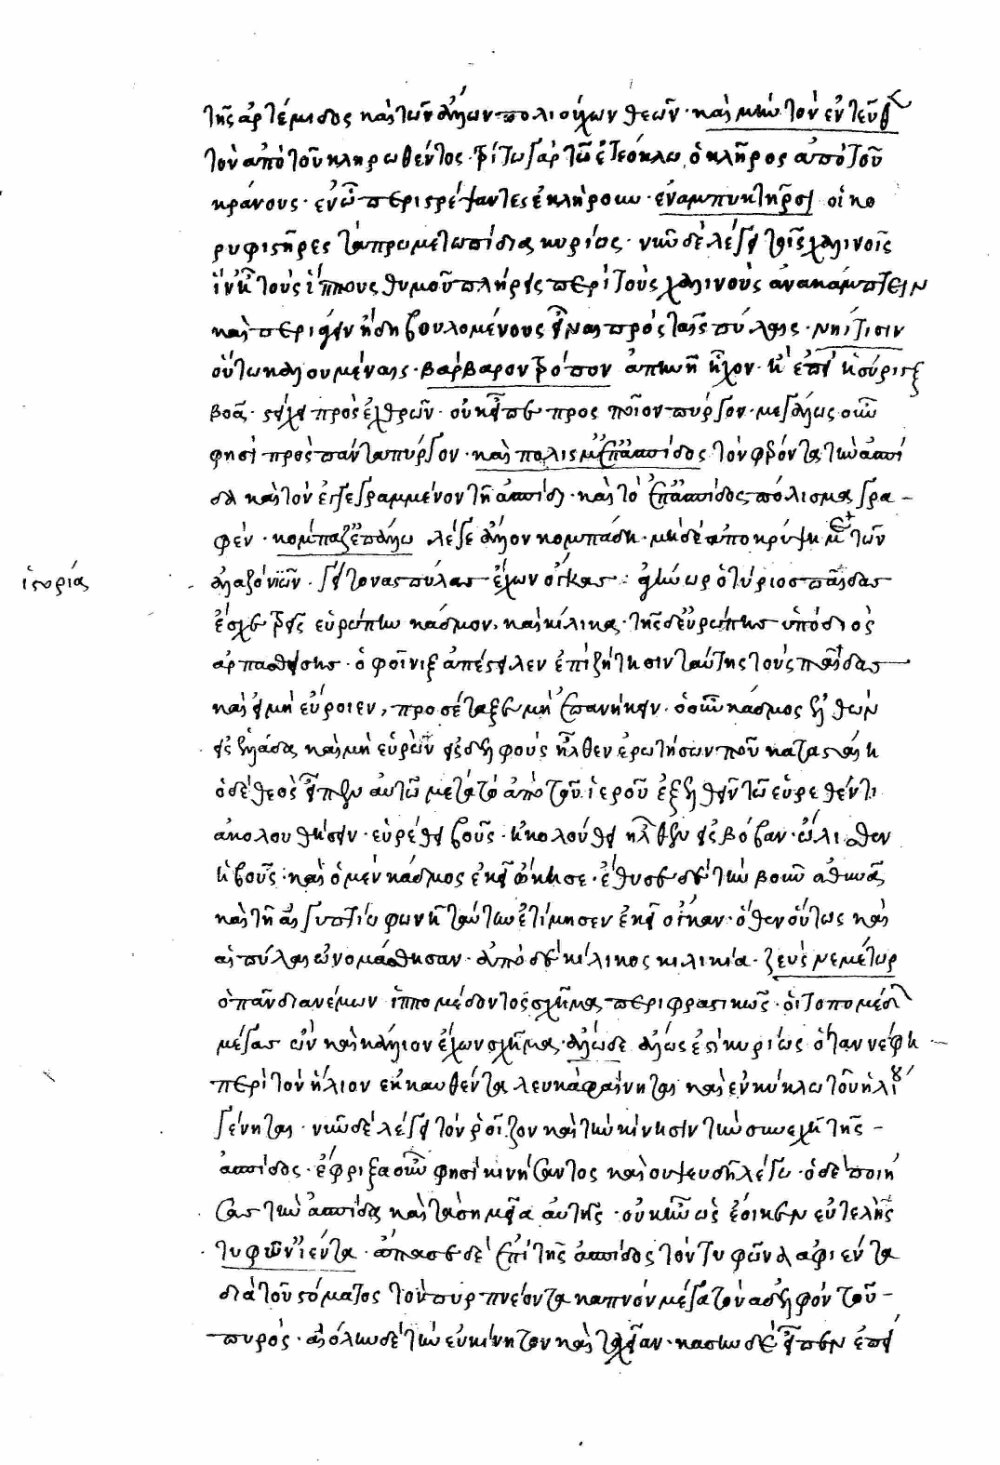 τῆς ἀρτέμιδος καὶ τῶν ἄλλων πολιούχων θεῶν · καὶ μὴν τὸν ἐντεῦθ
τὸν ἀπὸ τοῦ κληρωθέντος · τρίτω γὰρ τῶ ἐτεόκλω ὁ κλῆρος ἀπὸ τοῦ
κράνους · ἐν ὧ περιστρέψαντες ἐκλήρουν · ἐν ἀμπυκτῆρσι οἱ κο
ρυφιστῆρες τὰ προμετωπίδια κυρίως · νῦν δὲ λέγει τοῖς χαλινοῖς
ἵν ἢ τοὺς ἵππους θυμοῦ πλήρεις περὶ τοὺς χαλινοὺς ἀνακάμπτειν
καὶ περιάγειν ἤδη βουλομένους εἶναι πρὸς ταῖς πύλαις · νηίτισιν
οὕτω καλουμέναις · βάρβαρον τρόπον ἀπηνῆ ἦχον · ἢ ἐπεὶ ἡ σύριγξ
βοᾶ · στείχει πρὸς ἐχθρῶν · οὐκ εἶπε πρὸς ποῖον πύργον · μεγάλως οὖν
φησὶ πρὸς πάντα πύργον · καὶ πόλισμ' ἐπ' ἀσπίδος τὸν φέροντα τὴν ἀσπί
δα καὶ τὸν ἐγγεγραμμένον τῆ ἀσπίδι · καὶ τὸ ἐπ' ἀσπίδος πόλισμα γρα
φέν · κόμπαζ' ἐπ' ἄλλω λέγε ἄλλον κομπάσαι · μηδὲ ἀποκρύψη τῶν
ἀλαζονιῶν · γείτονας πύλας ἔχων ὄγκας : ἀγήνωρ ὁ τύριος παῖδας
ἱστορία
ἔσχε τρεῖς εὐρώπην κάδμον, καὶ κίλικα · τῆς δ' εὐρώπης ὑπὸ διὸς
ἁρπασθείσης · ὁ φοῖνιξ ἀπέστειλεν ἐπιζήτησιν ταύτης τοὺς παῖδας
καὶ εἰ μὴ εὕροιεν, προσέταξε μὴ ἐπανήκειν · ὁ οὖν κάδμος ἐλθὼν
εἰς ἑλλάδα, καὶ μὴ εὑρὼν εἰς δελφοὺς ἦλθεν ἐρωτήσων ποῦ καταστάιη
ὁ δὲ θεὸς εἶπεν αὐτῶ μετὰ τὸ ἀπὸ τοῦ ἱεροῦ ἐξελθεῖν τῶ εὑρεθέντι
ἀκολουθῆσαι · εὑρέθη βοῦς · ἠκολούθει ἦλθεν εἰς βόβαν · ὤλισθεν
ἡ βοῦς · καὶ ὁ μὲν κάδμος ἐκεῖ ᾤκησε · ἔθυσε δὲ τὴν βοῦν ἀθηνᾶ
καὶ τῆ αἰγυπτία φωνῆ ταύτην ἐτίμησεν ἐκεῖ ὄγκαν · ὅθεν οὕτως καὶ
αἱ πύλαι ὠνομάσθησαν · ἀπὸ δὲ κίλικος κιλικία · ζεὺς νεμέτωρ
ὁ πᾶν διανέμων ἱππομέδοντος σχῆμα περιφραστικῶς · ὁ ἱππομέδων
μέγας ὢν καὶ κάλλιον ἔχων σχῆμα · ἅλω δὲ ἅλως ἐστὶ κυρίως ὅταν νέφη
περὶ τὸν ἥλιον ἐκκαυθέντα λευκὰ φαίνηται καὶ ἐν κύκλω τοῦ ἡλίου
γένηται · νῦν δὲ λέγει τὸν ῥοῖζον καὶ τὴν κίνησιν τὴν συνεχῆ τῆς
ἀσπίδος · ἔφριξα οὖν φησὶ κινήσαντος καὶ οὐ ψευδῆ λέγω · ὁ δὲ ποιή
σας τὴν ἀσπίδα καὶ τὰ σημεῖα αὐτῆς · οὐκ ἦν ὡς ἔοικεν εὐτελὴς
τυφῶν' ἱέντα · ἅπασε δὲ ἐπὶ τῆς ἀσπίδος τὸν τυφῶνα ἀφιέντα
διὰ τοῦ στόματος τὸν πυρπνέοντα καπνὸν μέγα τὸν ἀδελφὸν τοῦ
πυρός · αἰόλην δὲ τὴν εὐκίνητον καὶ ταχεῖαν · κάσιν δὲ εἶπεν ἐπεὶ